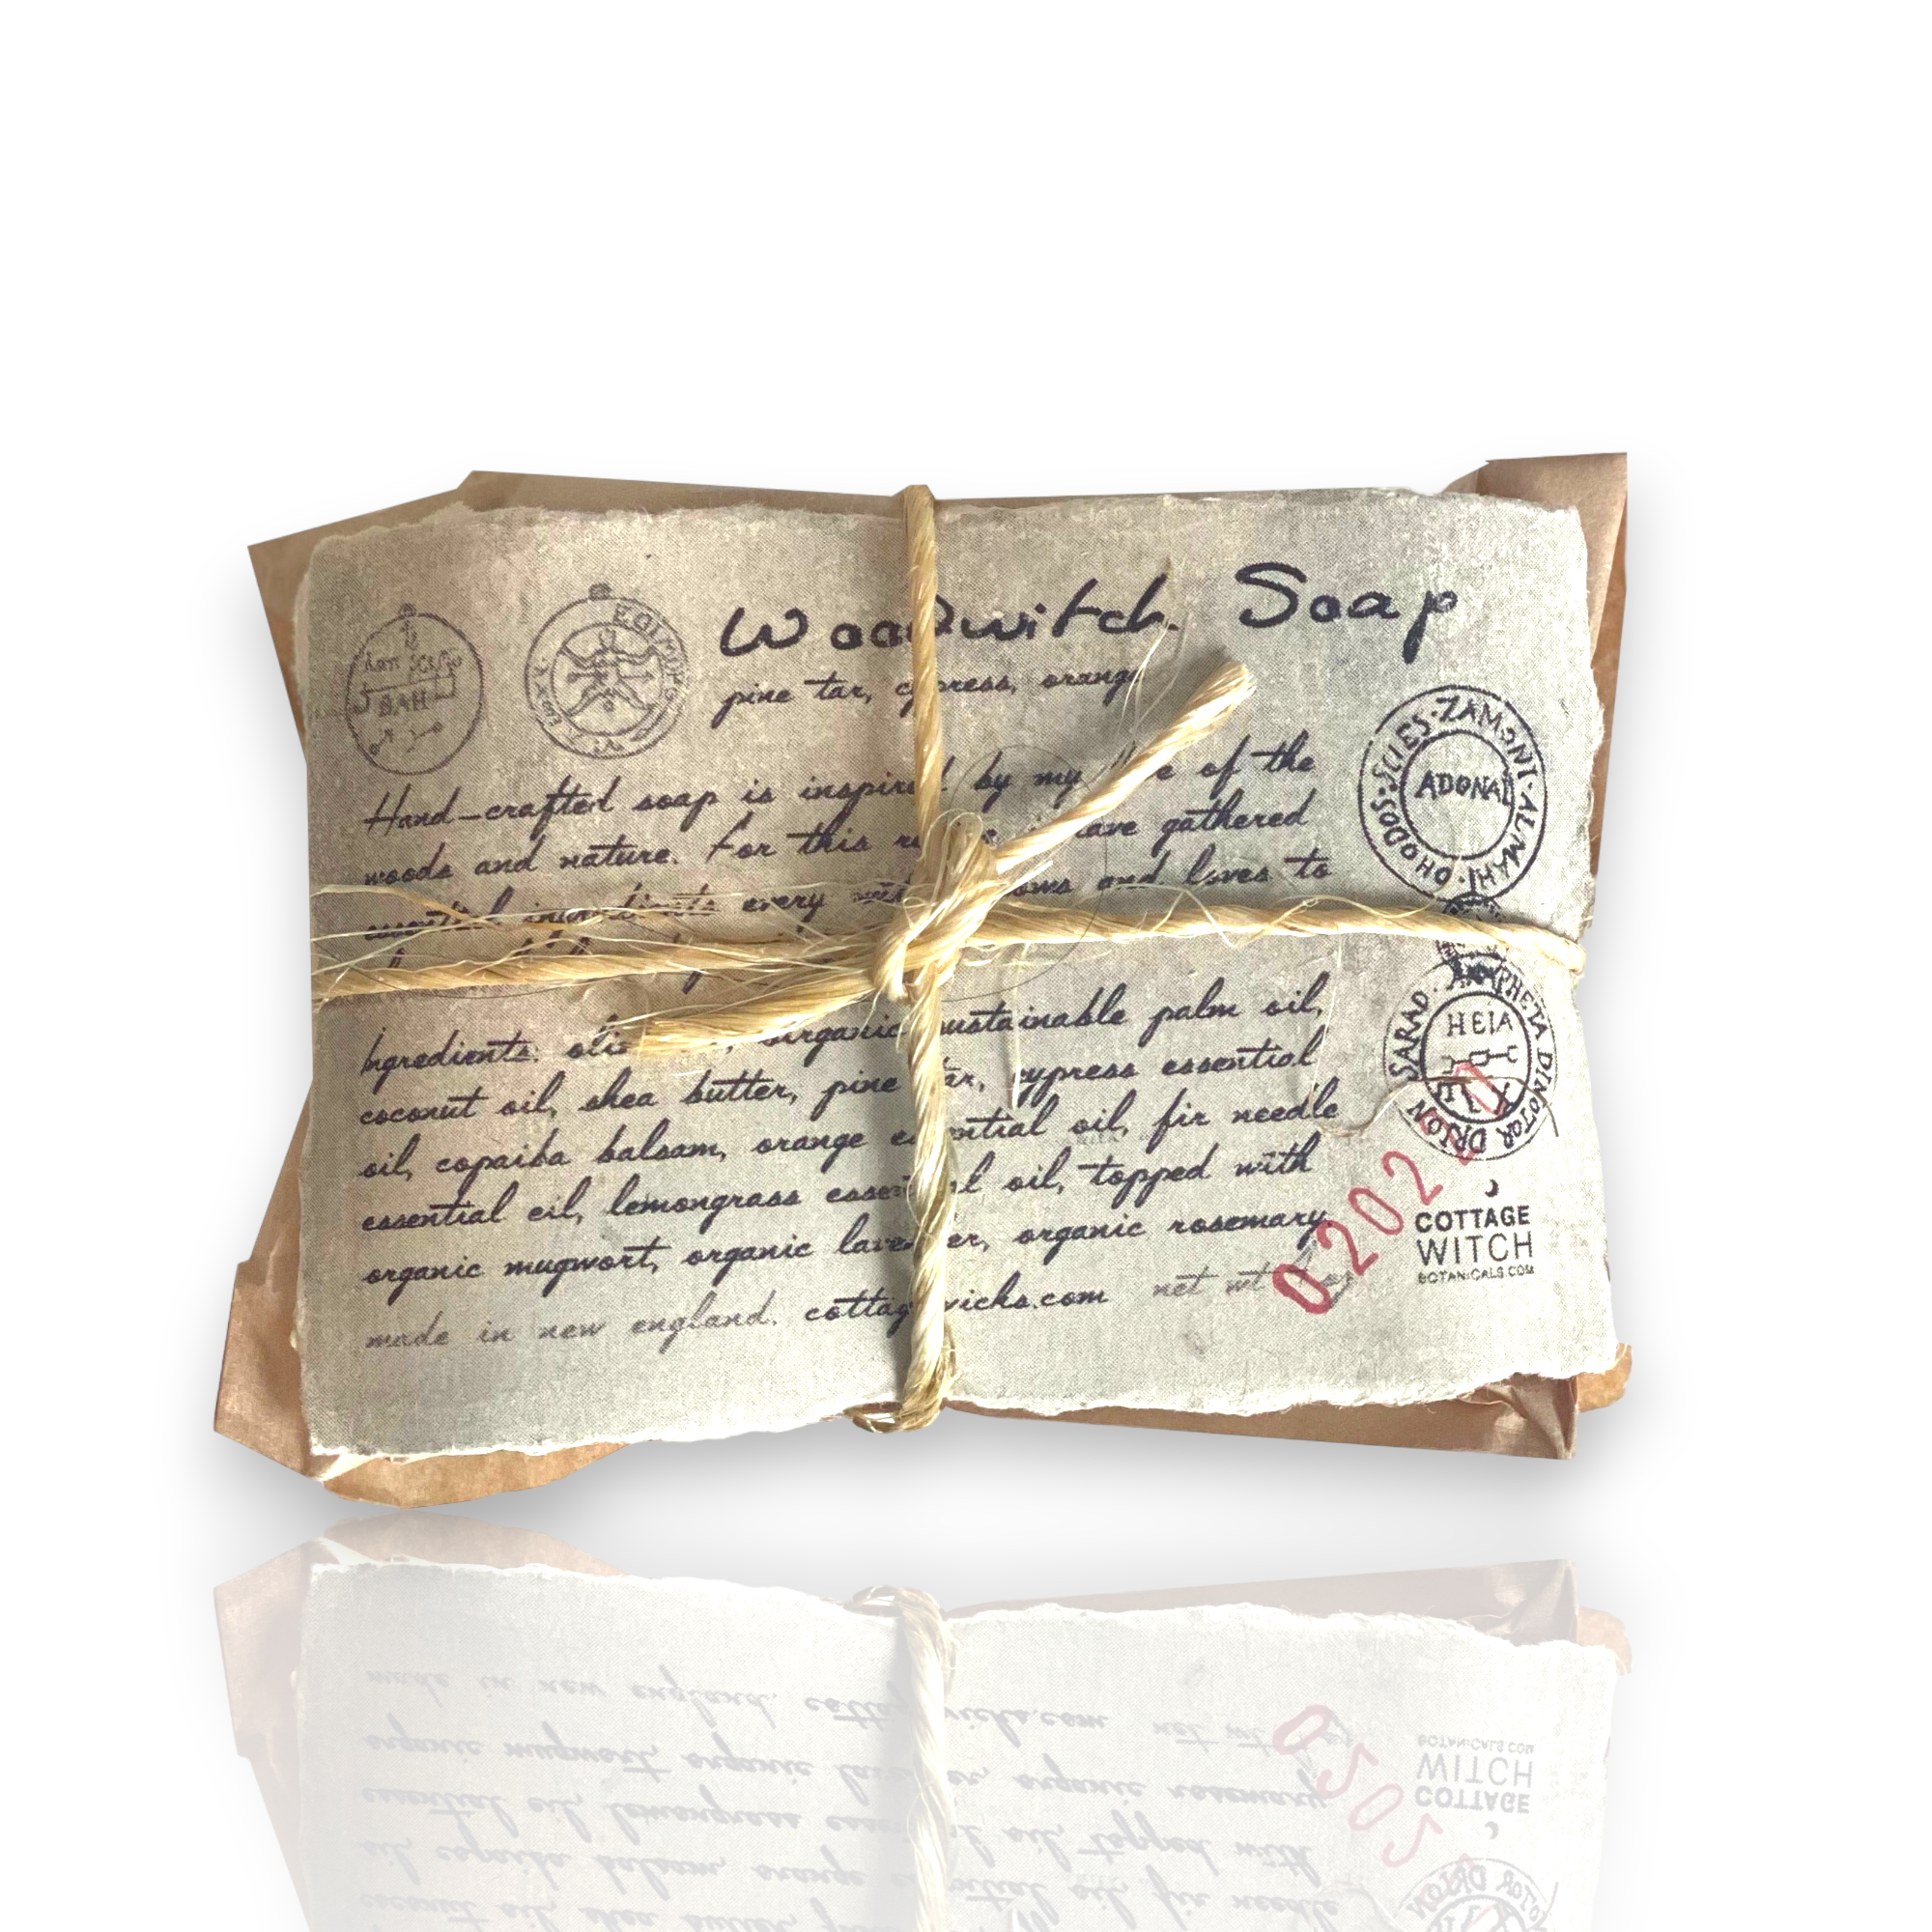 Woodwitch Soap
pine tar, cypress, orange
Hand-crafted soap is inspired by my of the
woods and nature. For this have gathered
essential ingredients every and loves to
Ingredients: organic sustainable palm oil,
coconut oil, shea butter, pine tar, cypress essential
oil, copaiba balsam, orange essential oil, fir needle
essential oil, lemongrass essential oil, topped with
organic mugwort, organic lavender, organic rosemary
made in new england. cottagewicks.com net wt
SCIES·ZAMONT·ALMAHI·OHODOS·
ADONAI
SARAD
DINOTOR ORION
HEIA
BAH
0202
COTTAGE
WITCH
BOTANICALS.COM